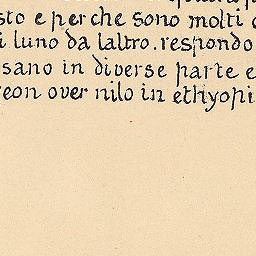 sto e perche sono molti
i luno da laltro. respondo
sano in diverse parte e
eon over nilo in ethyopi